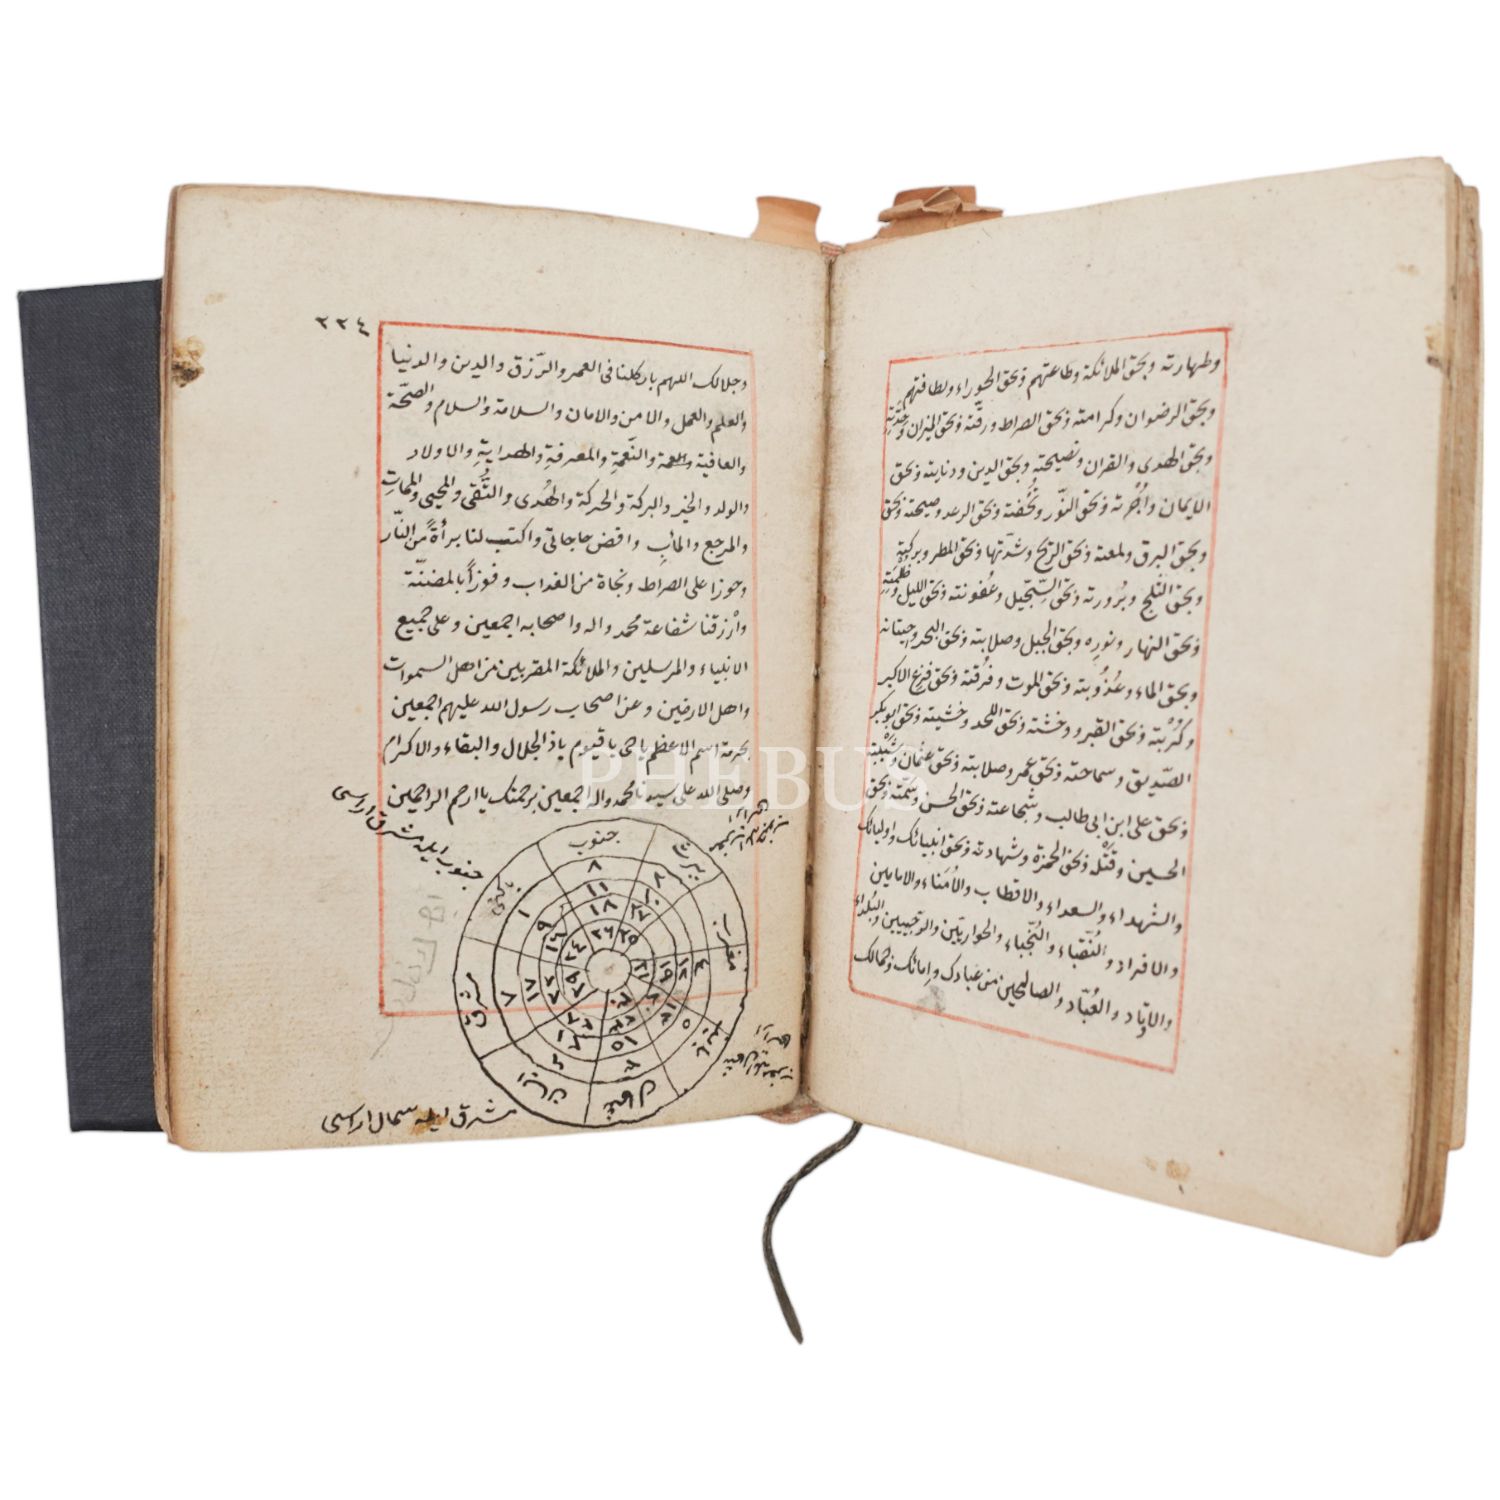 وطهارته وبحق الملائكة وطاعتهم وبحق الحوراء ولطافتهم
وبحق الرضوان وكرامته وبحق الصراط ورقّته وبحق الميزان وخفّته
وبحق الهدى والقران ونصيحته وبحق الدين وديانته وبحق
الايمان وبحق النّور وتُحُفته وبحق الرعد وصيحته وبحق
وبحق البرق ولمعته وبحق الريح وشدّتها وبحق المطر وبركته
وبحق الثلج وبُرُورته وبحق السِّجّيل وعُفونته وبحق الليل وظُلمَتِهِ
وبحق النهار ونوره وبحق الجبل وصلابته وبحق البحر وحيتانه
وبحق الماء وعُذُوبته وبحق الموت وفُرُقته وبحق فزع الاكبر
وكُرْبته وبحق القبر ووحْشته وبحق اللحد وخشيته وبحق ابوبكر
الصّديق وسماحته وبحق عمر وصلابته وبحق عثمان
وبحق على ابن ابى طالب وشجاعته وبحق الحسن وسمّته وبحق
الحسين وقتله وبحق الحمزة وشهادته وبحق انبيائك واوليائك
والشهداء والسعداء والاقطاب والأُمَناء والامامين
والافراد والنُّقباء والنُّجَباء والحواريّين والرجبيين والبُدلاء
والاوتاد والعُبّاد والصالحين من عبادك وامائك وبجمالك
٢٢٤
وجلالك اللهم بارك لنا فى العمر والرّزق والدين والدنيا
والعلم والعمل والامن والامان والسلامة والسلام والصحّة
والعافية والنّعَمةِ والمعرفةِ والهدايةِ والاولاد
والولد والخير والبركة والحركة والهُدى والتُّقى والمحيى والمماتِ
والمرجع والمأبِ واقض حاجاتى واكتب لنا برأةً من النّار
وجوزا على الصراط ونجاة من العذاب وفوزاً بالمضنّة
وارْزقنا شفاعة محمد واله واصحابه اجمعين وعلى جميع
الانبياء والمرسلين والملائكة المقربين من اهل السموات
واهل الارضين وعن اصحاب رسول الله عليهم اجمعين
بحرمة اسم الاعظم ياحى ياقيوم ياذ الجلال والبقاء والاكرام
وصلى الله على سيدنا محمد واله اجمعين برحمتك ياارحم الراحمين
PHEBUS
جنوب ايله مشرق اراسى
جنوب
٨
١١
١٨
٢٦
مغرب
شمال
مشرق
مشرق ايله سمال اراسى